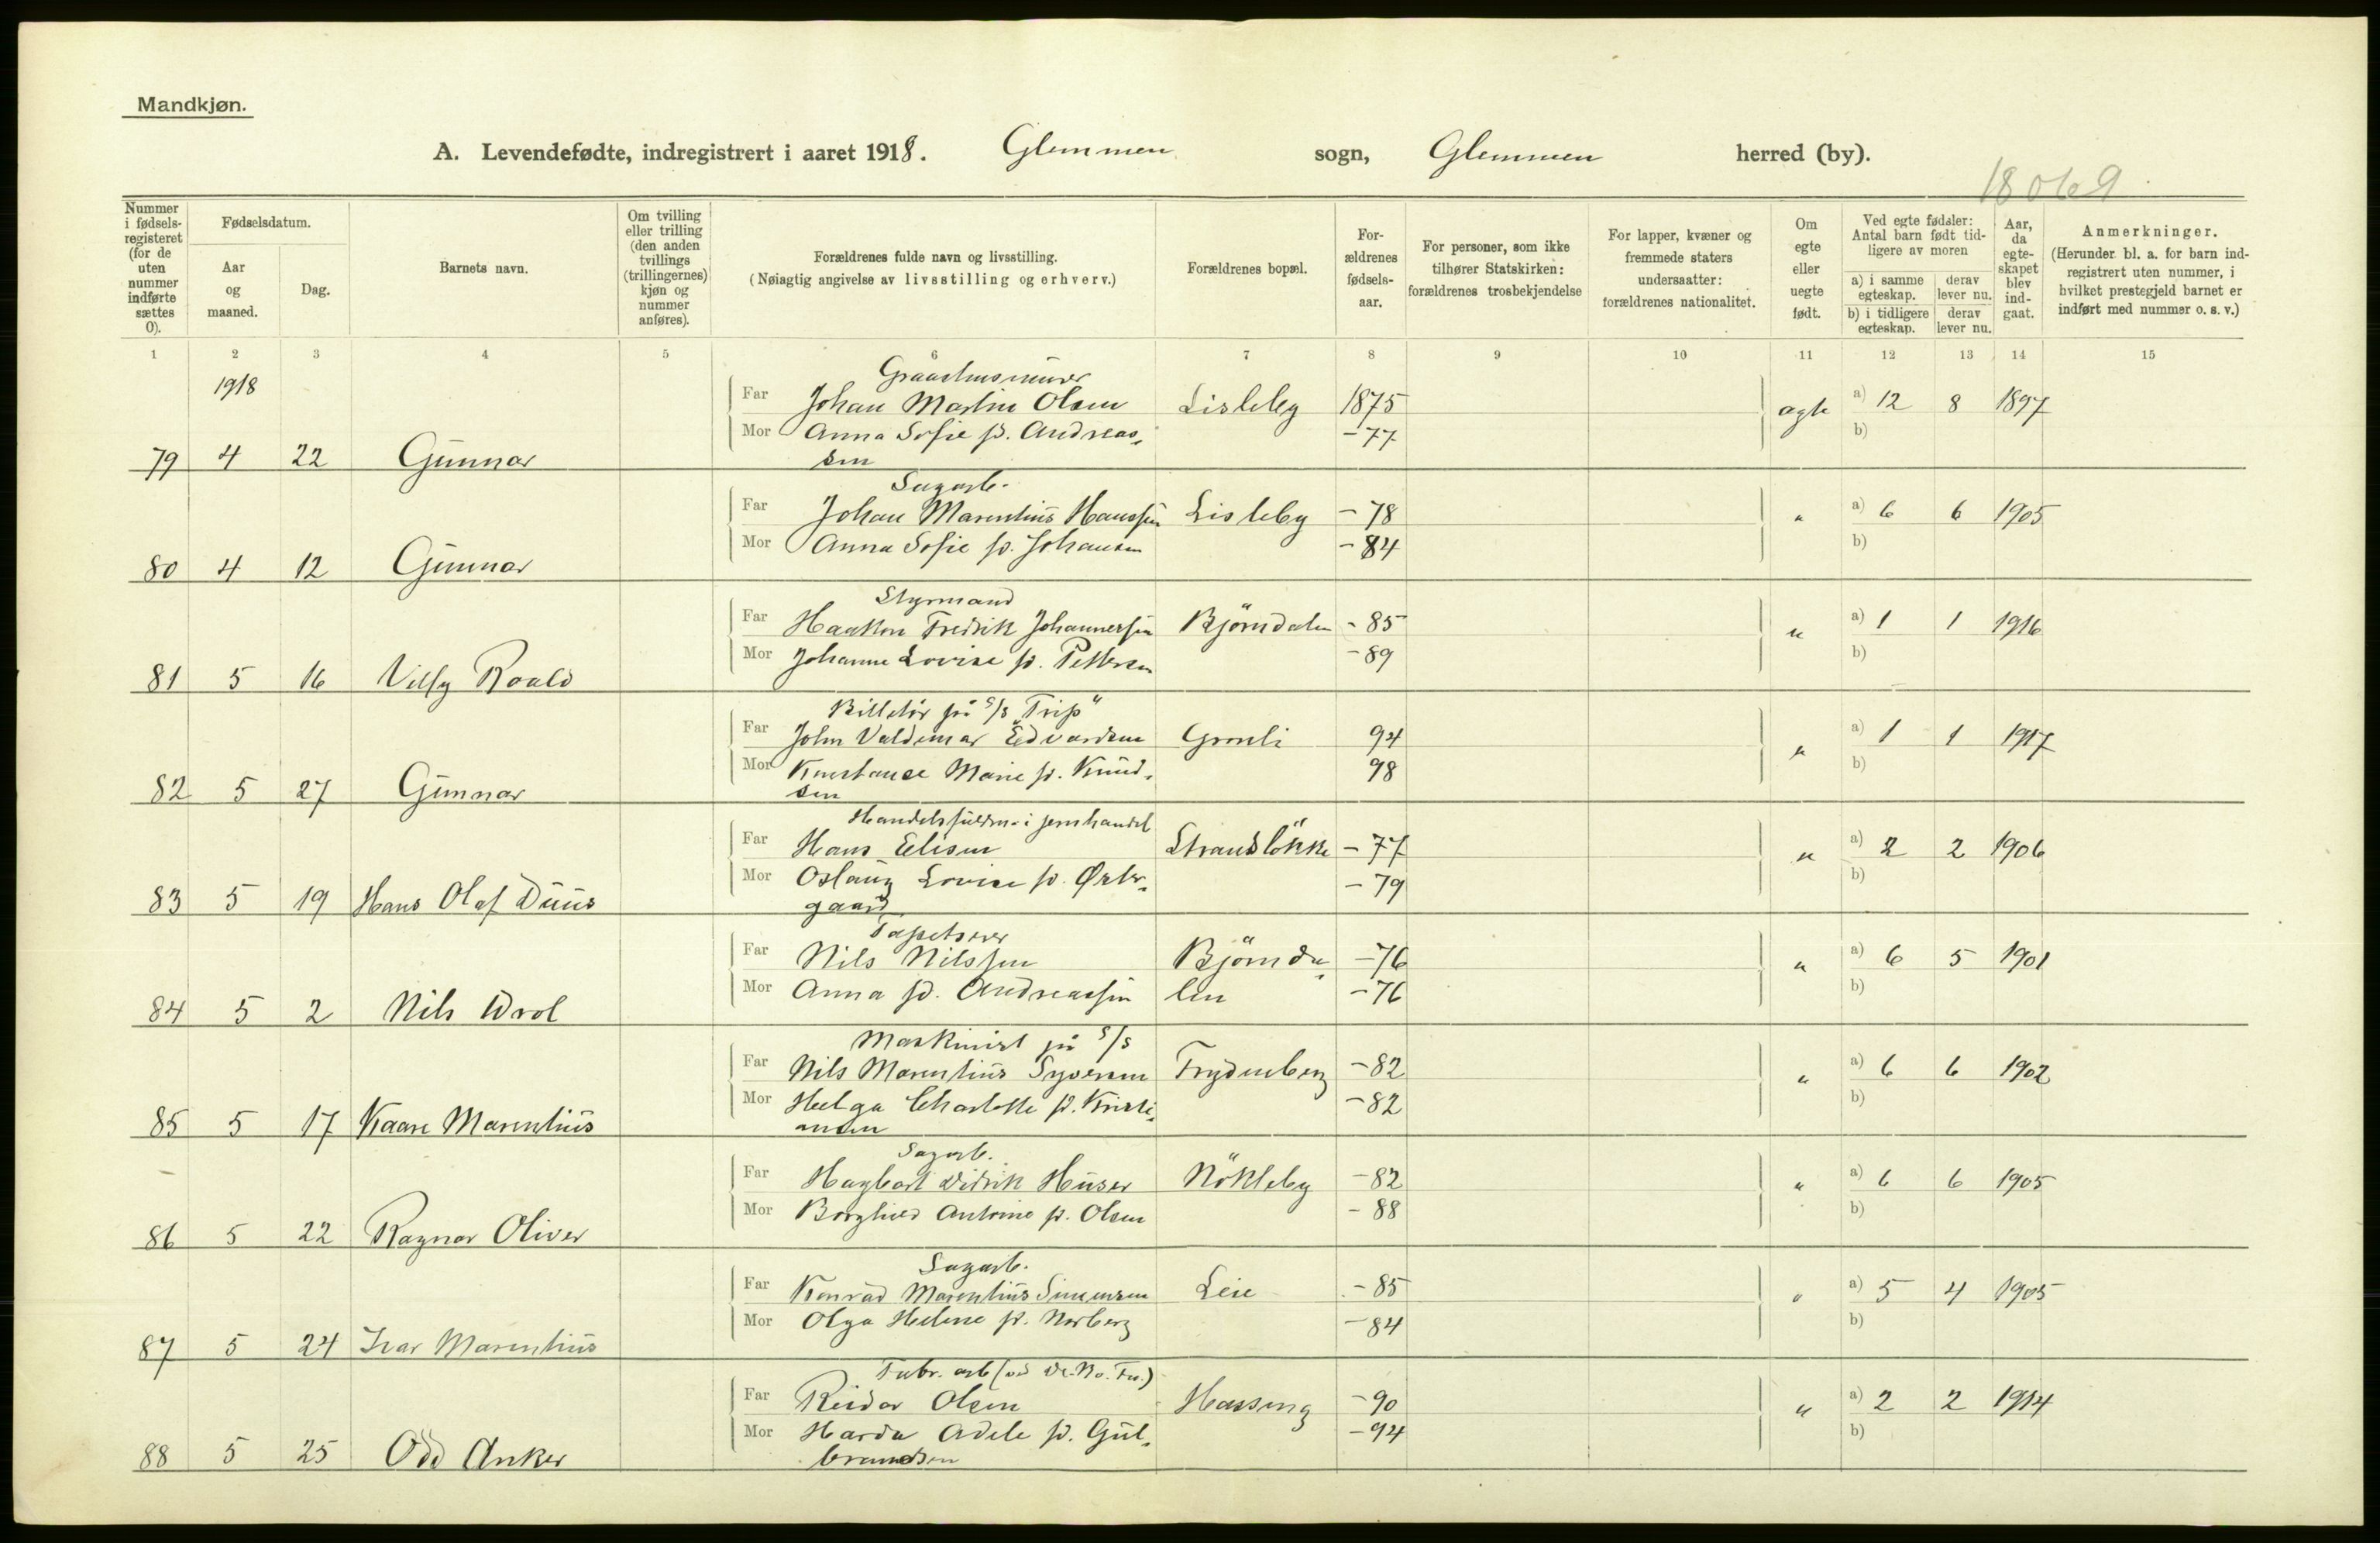 Mandkjøn.
A. Levendefødte, indregistrert i aaret 1918. Glemmen sogn, Glemmen herred (by).
18069
Nummer i fødselsregisteret (for de uten nummer indførte sættes 0).
Fødselsdatum.
Aar og maaned.
Dag.
Barnets navn.
Om tvilling eller trilling (den anden tvillings (trillingernes) kjøn og nummer anføres).
Forældrenes fulde navn og livsstilling.
(Nøiagtig angivelse av livsstilling og erhverv.)
Forældrenes bopæl.
Forældrenes fødselsaar.
For personer, som ikke tilhører Statskirken: forældrenes trosbekjendelse
For lapper, kvæner og fremmede staters undersaatter: forældrenes nationalitet.
Om egte eller uegte født.
Ved egte fødsler: Antal barn født tidligere av moren
a) i samme egteskap. derav lever nu.
b) i tidligere egteskap. derav lever nu.
Aar, da egteskapet blev indgaat.
Anmerkninger.
(Herunder bl. a. for barn indregistrert uten nummer, i hvilket prestegjeld barnet er indført med nummer o. s. v.)
1 2 3 4 5 6 7 8 9 10 11 12 13 14 15
1918
Far Johan Martin Olsen Lisleby 1875 ægte a) 12 8 1897
Mor Anna Sofie f. Andreas- -77 b)
79 4 22 Gunnar sen
Sagarb.
Far Johan Marentius Hanssen Lisleby -78 " a) 6 6 1905
Mor Anna Sofie f. Johansen -84 b)
80 4 12 Gunnar
Styrmand
Far Haakon Fredrik Johannessen Björndalen -85 " a) 1 1 1916
Mor Johanne Lovise f. Pettersen -89 b)
81 5 16 Villy Roald
Billetör på S/S "Trip"
Far John Valdemar Edvardsen Grönli 94 " a) 1 1 1917
Mor Konstanse Marie f. Knud- 98 b)
82 5 27 Gunnar sen
Handelsfuldm. i jernhandel
Far Hans Elisen Strandlökke -77 " a) 2 2 1906
Mor Aslaug Lovise f. Øster- -79 b)
83 5 19 Hans Olaf Duus gaard
Tapetserer
Far Nils Nilssen Björnda- -76 " a) 6 5 1901
Mor Anna f. Andreassen len -76 b)
84 5 2 Nils
Maskinist på S/S
Far Nils Marentius Syversen Frydenberg -82 " a) 6 6 1902
Mor Helga Charlotte f. Kristi- -82 b)
85 5 17 Kaare Marentius ansen
Sagarb.
Far Hagbart Didrik Huser Nökleby -82 " a) 6 6 1905
Mor Borghild Antonie f. Olsen -88 b)
86 5 22 Ragnar Oliver
Sagarb.
Far Konrad Marentius Simensen Leie -85 " a) 5 4 1905
Mor Olga Helene f. Norberg -84 b)
87 5 24 Ivar Marentius
Fabr. arb (ved De. No. Fa.)
Far Reidar Olsen Hassing -90 " a) 2 2 1914
Mor Harda Adele f. Gul- -94 b)
88 5 25 Odd Anker brandsen